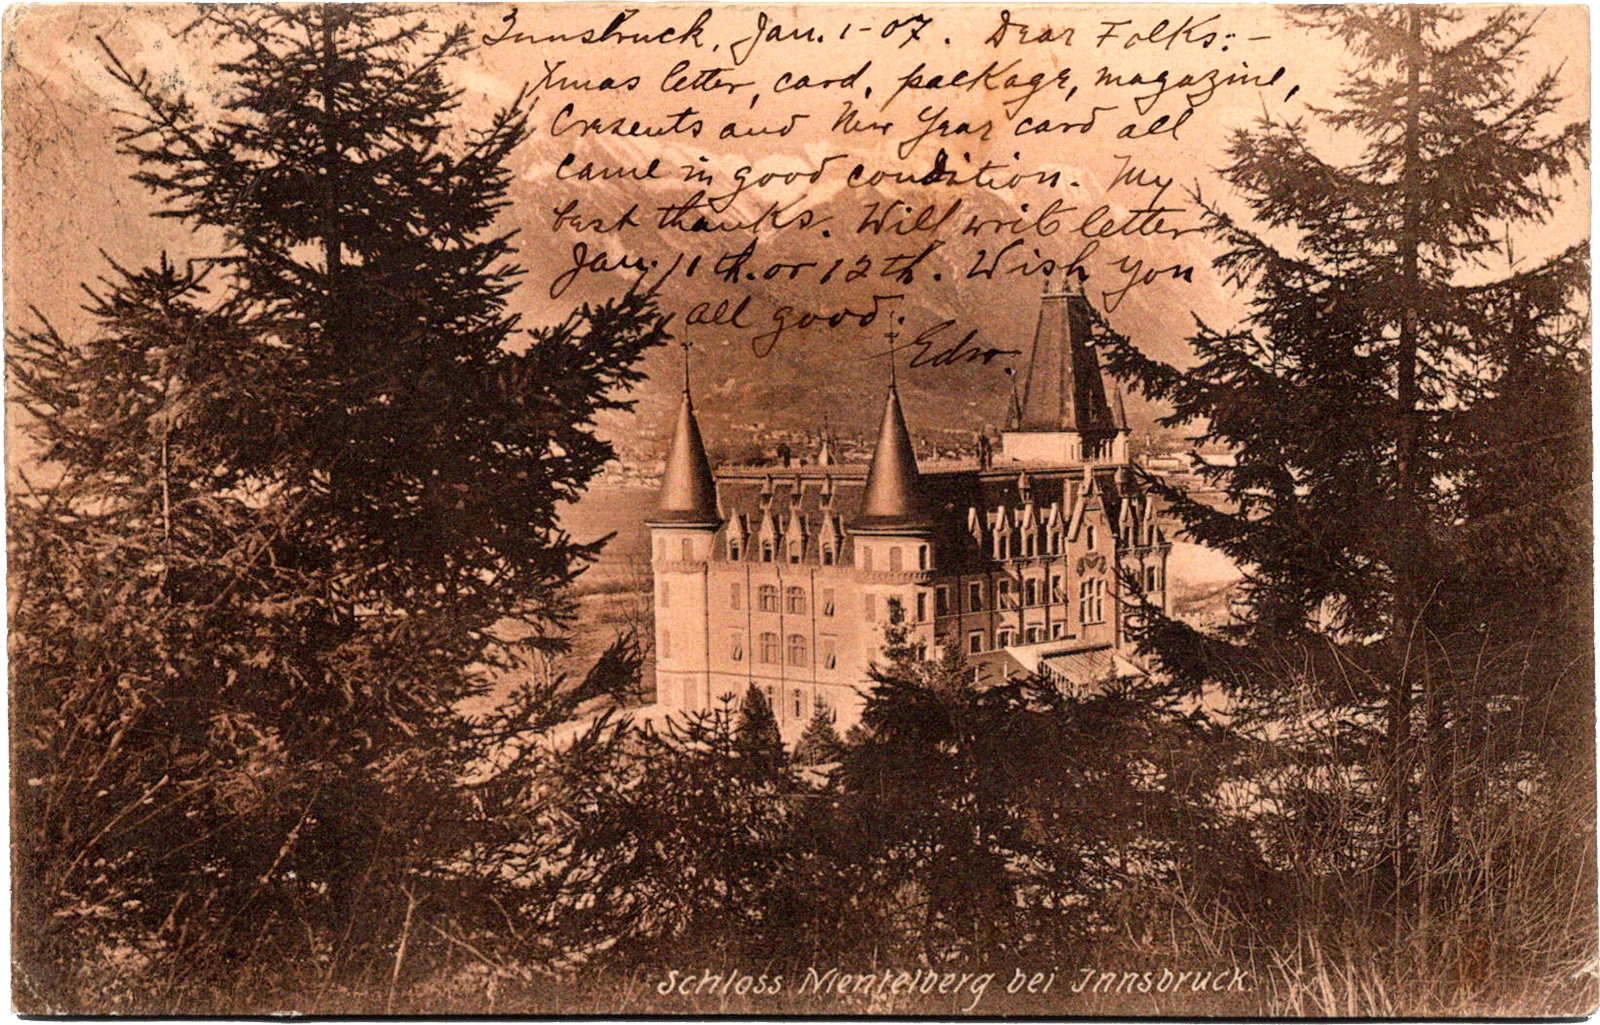 Innsbruck, Jan. 1-07. Dear Folks:-
Xmas letter, card, package, magazine,
Cresents and New Year card all
came in good condition. My
best thanks. Will write letter
Jan. 11th. or 12th. Wish you
all good.
Edw.
Schloss Mentelberg bei Innsbruck.